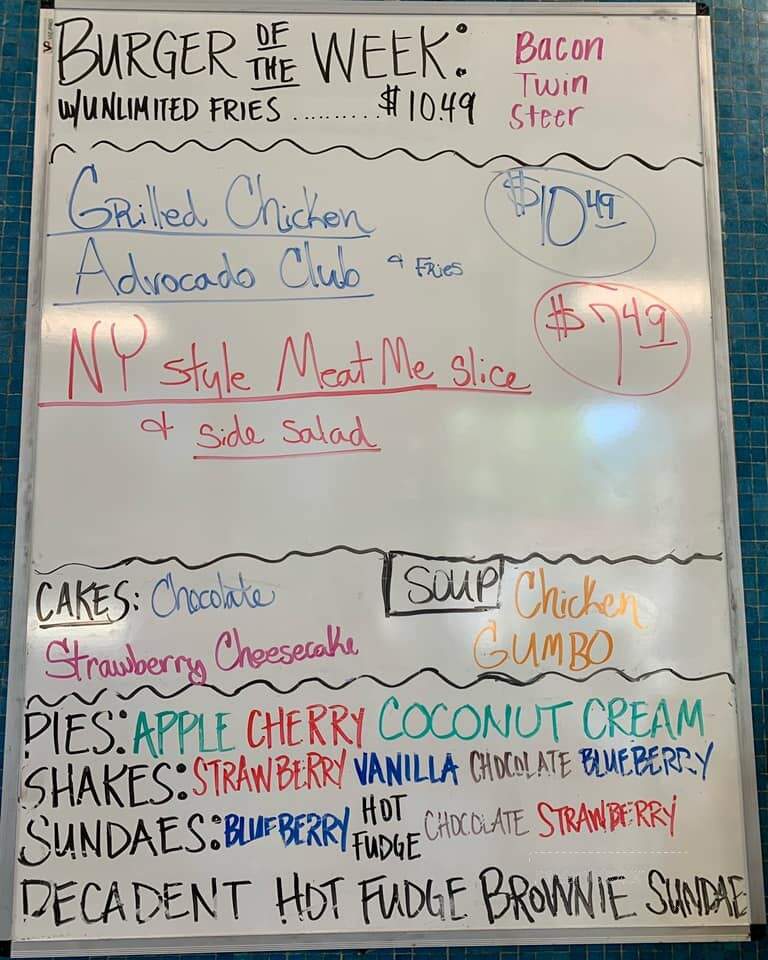 BURGER OF THE WEEK:
W/UNLIMITED FRIES ......... $10.49
Bacon
Twin
Steer
Grilled Chicken
Advocado Club & Fries
$10.49
NY Style Meat Me Slice
& Side Salad
$7.49
CAKES: Chocolate
Strawberry Cheesecake
SOUP Chicken
GUMBO
PIES: APPLE CHERRY COCONUT CREAM
SHAKES: STRAWBERRY VANILLA CHOCOLATE BLUEBERRY
SUNDAES: BLUEBERRY HOT FUDGE CHOCOLATE STRAWBERRY
DECADENT HOT FUDGE BROWNIE SUNDAE